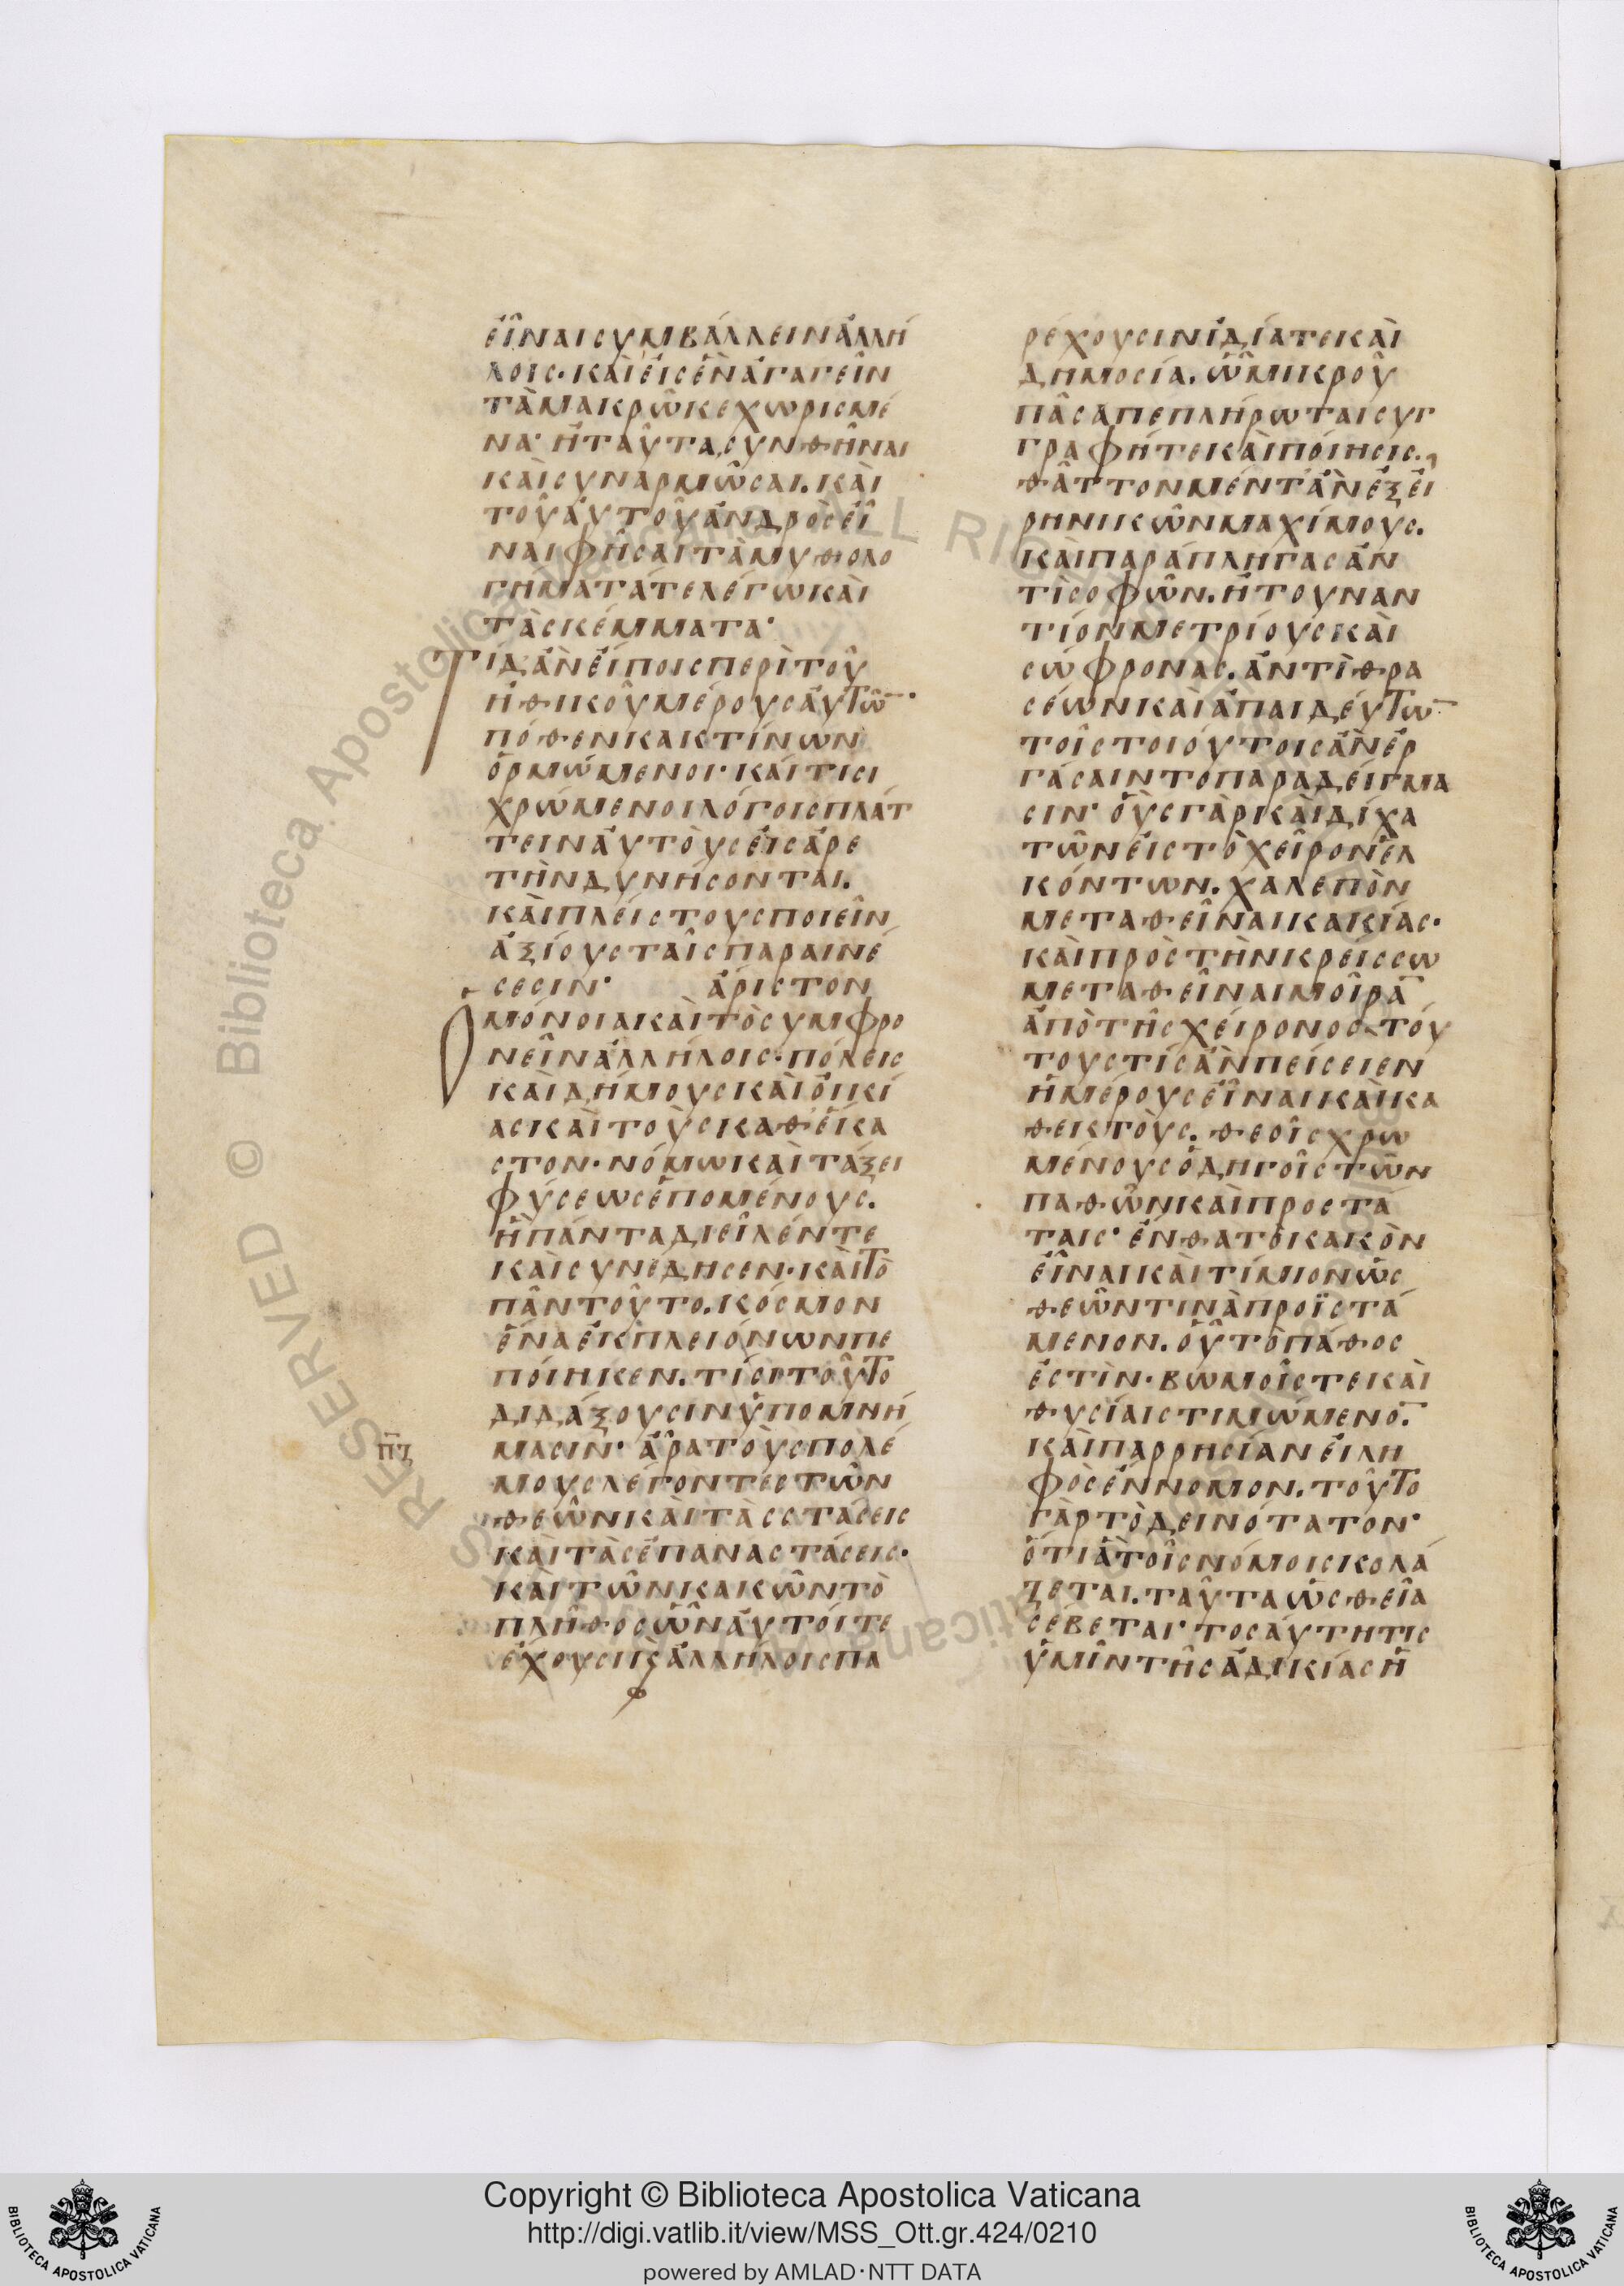 εἶναι συμβάλλειν ἀλλή
λοις· καὶ εἰς ἓν ἀγαγεῖν
τὰ μακρῶ κεχωρισμέ
να· ἢ ταῦτα συνθῆναι
καὶ συναρμῶσαι. καὶ
τοῦ αὐτοῦ ἀνδρὸς εἶ
ναι φῆσαι τὰ μυθολο
γήματά τε λέγω καὶ
τὰ σκέμματα·
Τί δ' ἂν εἴποις περὶ τοῦ
ἠθικοῦ μέρους αὐτῶ̄·
πόθεν κακ τίνων
ὁρμώμενοι· καί τισι
χρώμενοι λόγοις πλάτ
τειν αὐτοὺς εἰς ἀρε
τὴν δυνήσονται.
καὶ πλείστους ποιεῖν
ἀξίους ταῖς παραινέ
σεσιν· ἄριστον
Ὁμόνοια καὶ τὸ συμφρο
νεῖν ἀλλήλοις· πόλεις
καὶ δήμους καὶ οἰκί
ας καὶ τοὺς καθ' ἕκα
στον· νόμω καὶ τάξει
φύσεως ἑπομένους.
ἣ πάντα διεῖλέν τε
καὶ συνέδησεν· καὶ τὸ
πᾶν τοῦτο. κόσμον
ἕνα ἐκ πλειόνων πε
ποίηκεν. τίσι τοῦτο
διδάξουσιν ὑπομνή
π̄ζ
μασιν· ἆρα τοὺς πολέ
μους λέγοντες τῶν
θεῶν καὶ τὰς στάσεις
καὶ τὰς ἐπαναστάσεις·
καὶ τῶν κακῶν τὸ
πλῆθος ὧν αὐτοί τε
ἔχουσι κ ἀλλήλοις πα
ρέχουσιν ἰδία τε καὶ
δημοσία. ὧν μικροῦ
πᾶσα πεπλήρωται συγ
γραφή τε καὶ ποίησις.
θᾶττον μέντ' ἂν ἐξ εἰ
ρηνικῶν μαχίμους.
καὶ παράπληγας ἀν
τὶ σοφῶν. ἢ τουναν
τίον μετρίους καὶ
σώφρονας. ἀντὶ θρα
σέων καὶ ἀπαιδεύτω̄
τοῖς τοιούτοις ἂν ἐρ
γάσαιντο παραδείγμα
σιν· οὓς γὰρ καὶ δίχα
τῶν εἰς τὸ χεῖρον ἑλ
κόντων. χαλεπὸν
μεταθεῖναι κακίας·
καὶ πρὸς τὴν κρείσσω
μεταθεῖναι μοῖρᾱ
ἀπὸ τῆς χείρονος· τού
τους τίς ἂν πείσειεν
ἡμέρους εἶναι καὶ κα
θεκτοὺς. θεοῖς χρω
μένους ὁδηγοῖς τῶν
παθῶν καὶ προστά
ταις· ἔνθα τὸ κακὸν
εἶναι καὶ τίμιον ὡς
θεῶν τινὰ προϊστά
μενον. οὗ τὸ πάθος
ἐστὶν· βωμοῖς τε καὶ
θυσίαις τιμώμενο̄.
καὶ παρρησίαν εἰλη
φὸς ἔννομον. τοῦτο
γὰρ τὸ δεινότατον·
ὅτι ἃ τοῖς νόμοις κολά
ζεται. ταῦτα ὡς θεῖα
σέβεται· τοσαύτη τις
ὑμῖν τῆς ἀδικίας ἡ
RESERVED © Biblioteca Apostolica Vaticana ALL RIGHTS
Copyright © Biblioteca Apostolica Vaticana
http://digi.vatlib.it/view/MSS_Ott.gr.424/0210
powered by AMLAD·NTT DATA
BIBLIOTECA APOSTOLICA VATICANA
BIBLIOTECA APOSTOLICA VATICANA